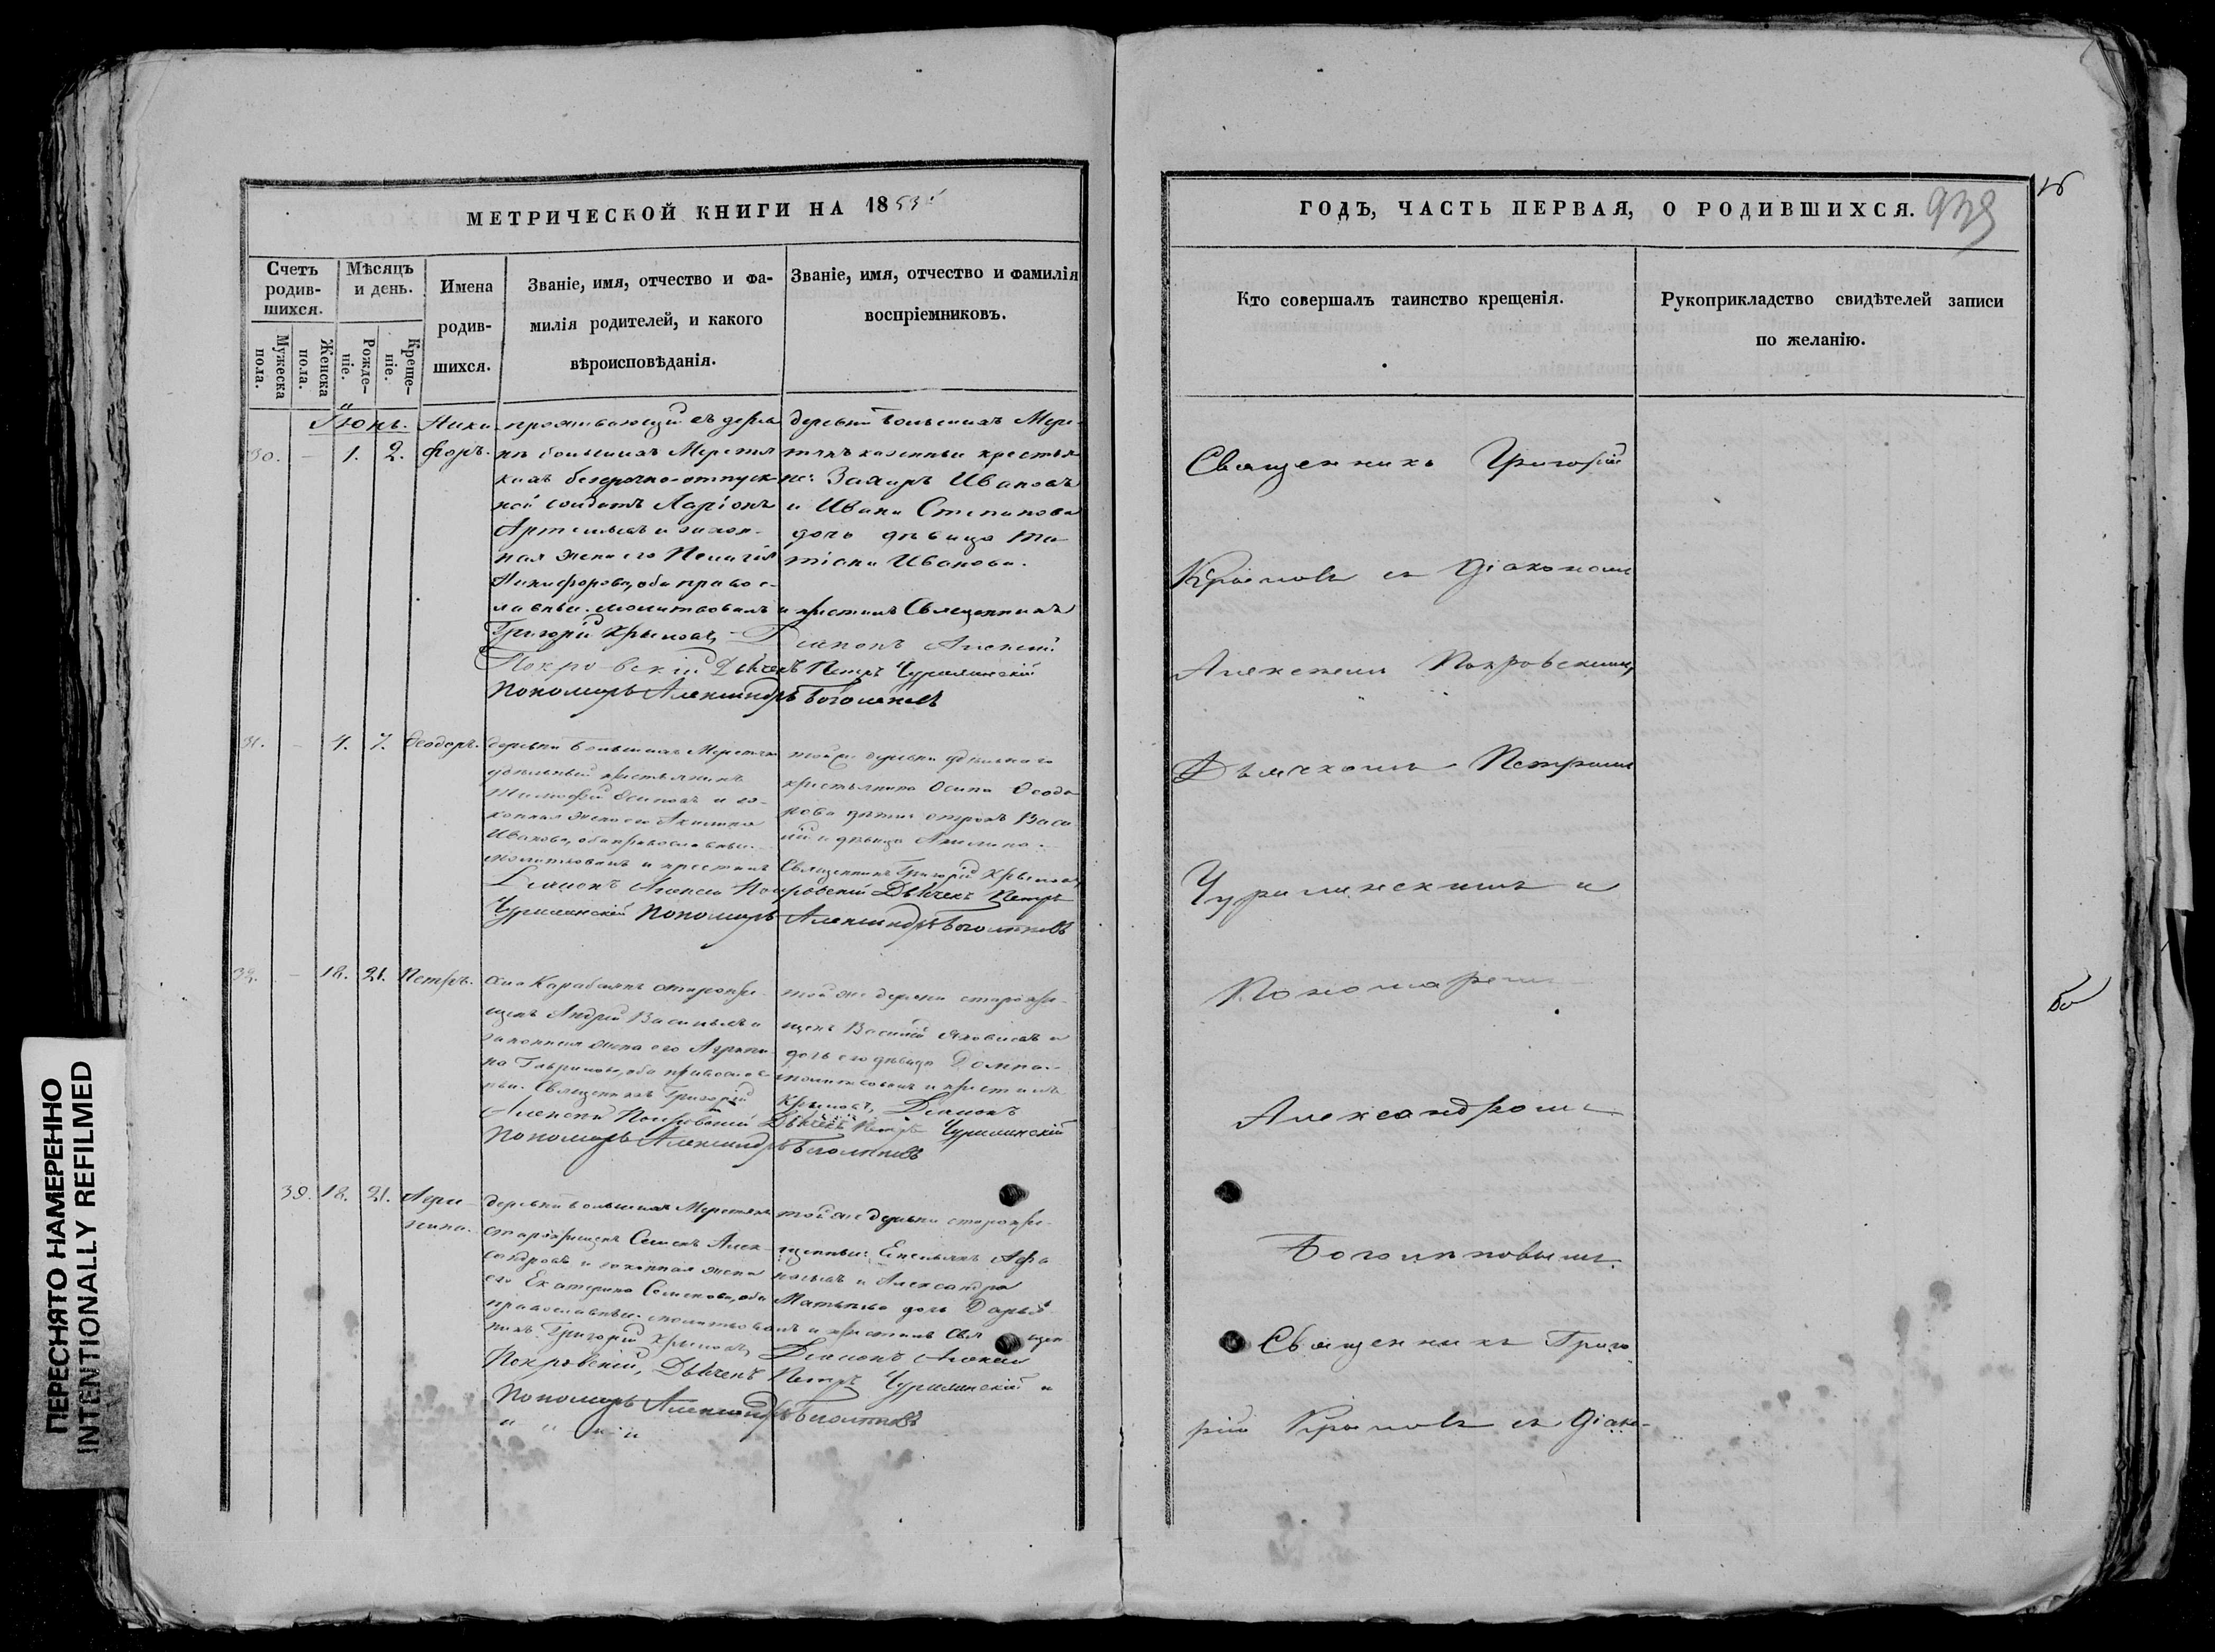 МЕТРИЧЕСКОЙ КНИГИ НА 1853.
Счетъ родив-шихся.
Мужеска пола.
Женска пола.
Мѣсяцъ и день.
Рожде-ніе.
Креще-ніе.
Имена
родив-
шихся.
Званіе, имя, отчество и фа-
милія родителей, и какого
вѣроисповѣданія.
Званіе, имя, отчество и фамилія
воспріемниковъ.
Іюнь.
30. - 1. 2. Ники-
форъ.
проживающій въ дерев
нѣ большихъ Меретя
кахъ безсрочно-отпуск
ной солдатъ Ларіонъ
Артемьевъ и закон-
ная жена его Пелагія
Никифорова, оба право с-
лавные. молитвовалъ и крестилъ Священникъ
Григорій Крыловъ, Діаконъ Алексій
Покровскій Дьячекъ Петръ Чурилинскій
Пономарь Александръ Боголѣповъ
деревни большихъ Мере-
тякъ казенные крестья
не: Захаръ Ивановъ
и Ивана Степанова
дочь дѣвица Та-
тіана Иванова.
31. - 4. 7. Ѳеодоръ.
деревни большихъ Меретякъ
удѣльный крестьянинъ
Тимофей Осиповъ и за-
конная жена его Акилина
Иванова, оба православные.
молитвовалъ и крестилъ Священникъ Григорій Крыловъ,
Діаконъ Алексій Покровскій Дьячекъ Петръ
Чурилинскій Пономарь Александръ Боголѣповъ
той же деревни удѣльнаго
крестьянина Осипа Ѳеодо
рова дѣти отрокъ Васи
лій и дѣвица Акилина.
32. - 18. 21. Петръ.
Карабаянъ старокре-
щенъ Андрей Васильевъ и
законная жена его Агрипи-
на Гаврилова, оба православ-
ные. Священникъ Григорій Крыловъ, Діаконъ
Алексій Покровскій Дьячекъ Петръ Чурилинскій
Пономарь Александръ Боголѣповъ
той же деревни старокре-
щенъ Василій Яковлевъ и
дочь его дѣвица Домна.
молитвовалъ и крестилъ
39. 18. 21. Агри-
пина.
деревни большихъ Меретякъ
старокрещенъ Семенъ Алек-
сандровъ и законная жена
его Екатерина Семенова, оба
православные. молитвовалъ и крестилъ Священ
никъ Григорій Крыловъ, Діаконъ Алексій
Покровскій, Дьячекъ Петръ Чурилинскій и
Пономарь Александръ Боголѣповъ
той же деревни старокре-
щенные: Емельянъ Афа
насьевъ и Александра
Матвѣева дочь Дарья
ГОДЪ, ЧАСТЬ ПЕРВАЯ, О РОДИВШИХСЯ.
939
Кто совершалъ таинство крещенія.
Рукоприкладство свидѣтелей записи
по желанію.
Священникъ Григорій
Крыловъ съ Діакономъ
Алексѣемъ Покровскимъ,
Дьячкомъ Петромъ
Чурилинскимъ и
Пономаремъ
Александромъ
Боголѣповымъ.
Священникъ Григо
рій Крыловъ съ Діако-
ПЕРЕСНЯТО НАМЕРЕННО
INTENTIONALLY REFILMED